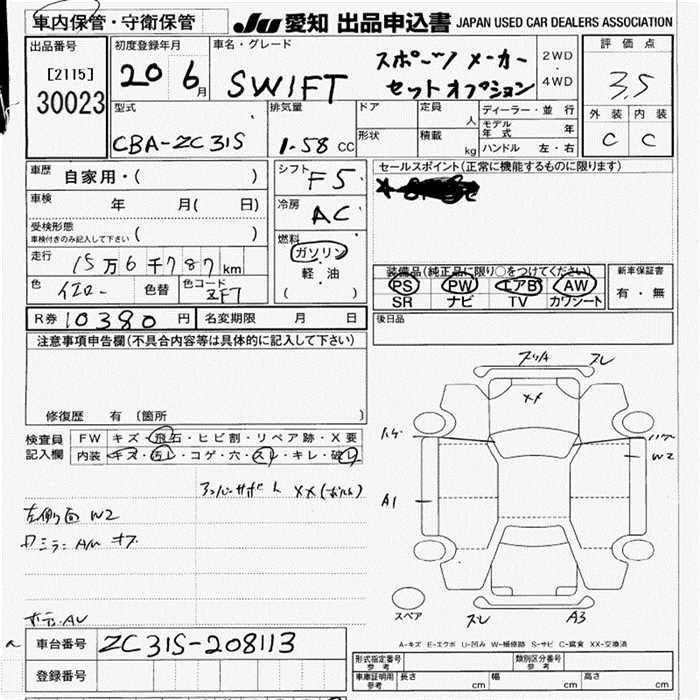 車内保管・守衛保管
JU 愛知 出品申込書 JAPAN USED CAR DEALERS ASSOCIATION
出品番号
[2115]
30023
初度登録年月
20 6月
車名・グレード
SWIFT
スポーツ メーカー
セットオプション
2WD
・
4WD
評価点
3.5
外装 内装
C C
型式
CBA-ZC31S
排気量
1.58 CC
ドア
形状
定員
人
積載
kg
ディーラー・並行
モデル年式 年
ハンドル 左・右
車歴 自家用・( )
車検 年 月( 日)
受検形態
車検付きのみ記入して下さい ( )
走行 15万6千787km
色 イエロー 色替 色コード ZF7
シフト F5
冷房 AC
燃料
ガソリン
・
軽・油
( )
セールスポイント(正常に機能するものに限ります)
装備品(純正品に限り○をつけてください)
PS PW エアB AW
SR ナビ TV カワシート
新車保証書
有・無
R券 10380 円 名変期限 月 日
後日品
注意事項申告欄(不具合内容等は具体的に記入して下さい)
修復歴 有 〔箇所 〕
検査員記入欄
FW キズ・飛石・ヒビ割・リペア跡・X要
内装 キズ・汚レ・コゲ・穴・スレ・キレ・破レ
XX
ハゲ
W2
A1
左側面 W2
スペア
スレ A3
車台番号 ZC31S-208113
登録番号
A-キズ E-エクボ U-凹み W-補修跡 S-サビ C-腐食 XX-交換済
型式指定番号 参考
類別区分番号 参考
車庫証明用 参考 長さ cm 幅 cm 高さ cm